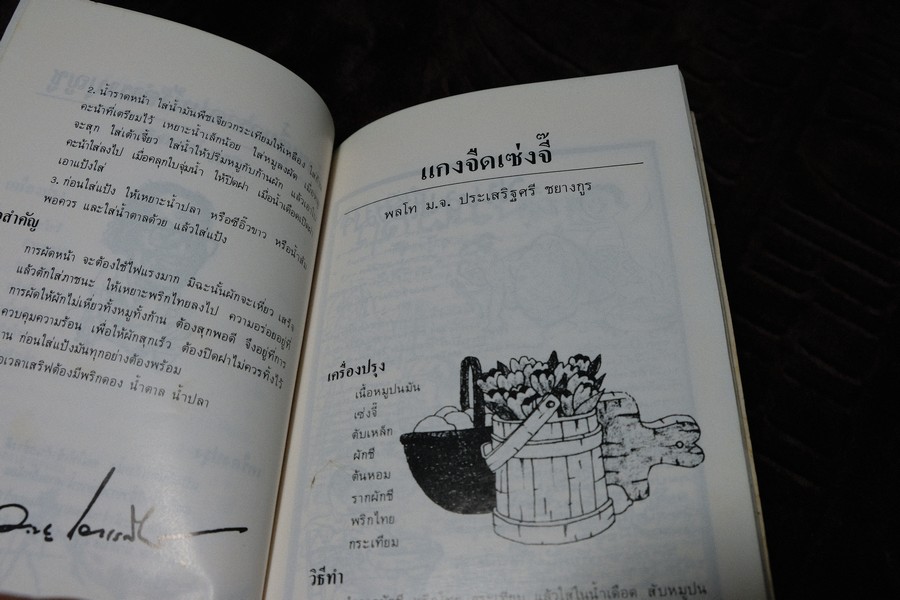 2. น้ำราดหน้า ใส่น้ำมันพืชเจียวกระเทียมให้เหลือง
คะน้าที่เตรียมไว้ เหยาะน้ำเล็กน้อย ใส่หมูลงผัด
จะสุก ใส่เต้าเจี้ยว ใส่น้ำให้ปริ่มหมูกับก้านผัก
คะน้าใส่ลงไป เมื่อคลุกใบชุ่มน้ำ ให้ปิดฝา เมื่อน้ำเดือด
เอาแป้งใส่
3. ก่อนใส่แป้ง ให้เหยาะน้ำปลา หรือซีอิ๊วขาว
พอควร และใส่น้ำตาลด้วย แล้วใส่แป้ง
สำคัญ
การผัดหน้า จะต้องใช้ไฟแรงมาก มิฉะนั้นผักจะเหี่ยว
แล้วตักใส่ภาชนะ ให้เหยาะพริกไทยลงไป ความอร่อยอยู่ที่
การผัดให้ผักไม่เหี่ยวทั้งหมูทั้งก้าน ต้องสุกพอดี จึงอยู่ที่การ
ควบคุมความร้อน เพื่อให้ผักสุกเร็ว ต้องปิดฝาไม่ควรทิ้งไว้
นาน ก่อนใส่แป้งมันทุกอย่างต้องพร้อม
เวลาเสริฟต้องมีพริกดอง น้ำตาล น้ำปลา
แกงจืดเซ่งจี๊
พลโท ม.จ. ประเสริฐศรี ชยางกูร
เครื่องปรุง
เนื้อหมูปนมัน
เซ่งจี๊
ตับเหล็ก
ผักชี
ต้นหอม
รากผักชี
พริกไทย
กระเทียม
วิธีทำ
รากผักชี พริกไทย กระเทียม แล้วใส่ในน้ำเดือด สับหมูปน